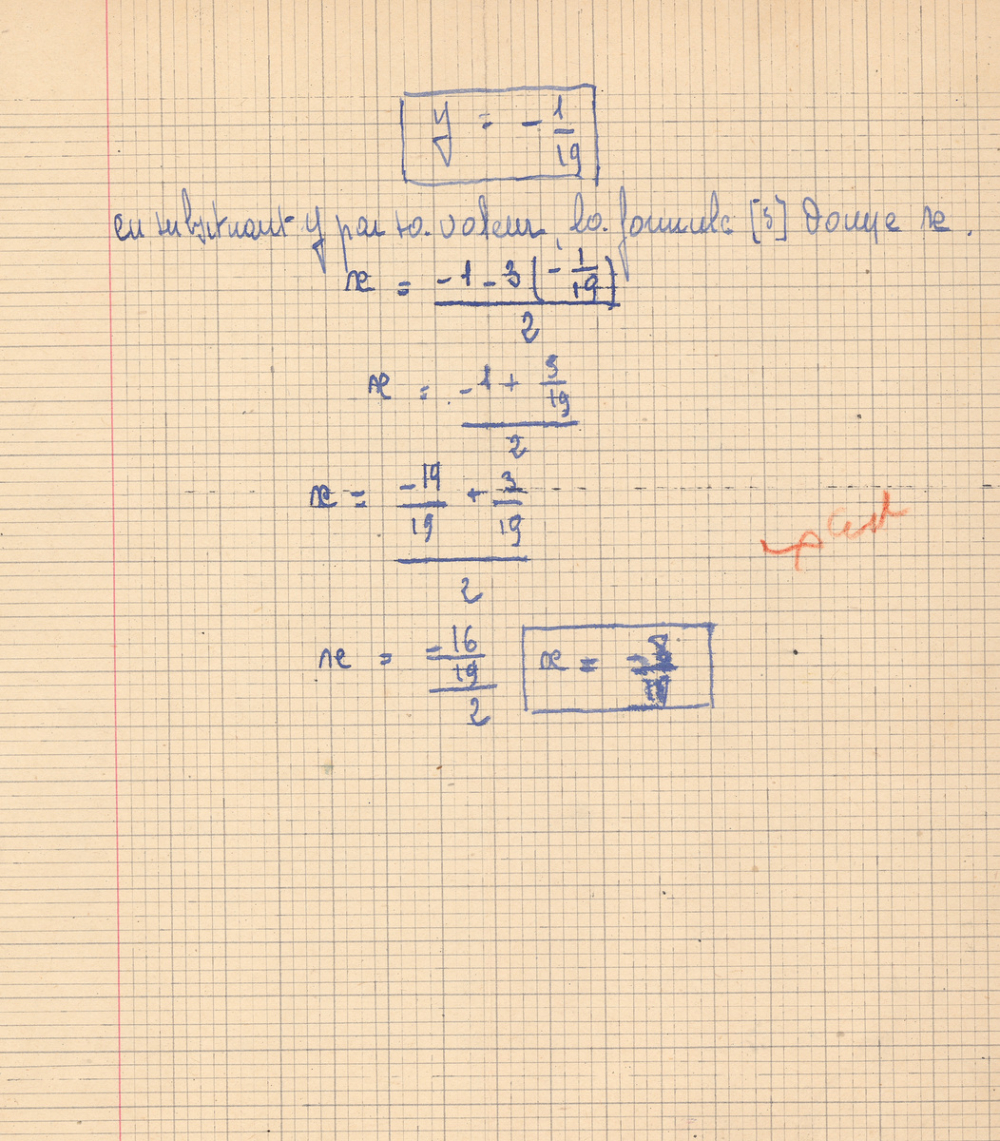 y = - 1/19
en substituant y par sa valeur, la formule [3] donne x.
x = (-1 - 3(-1/19))/2
x = (-1 + 3/19)/2
x = (-19/19 + 3/19)/2
x = (-16/19)/2 x = -8/19